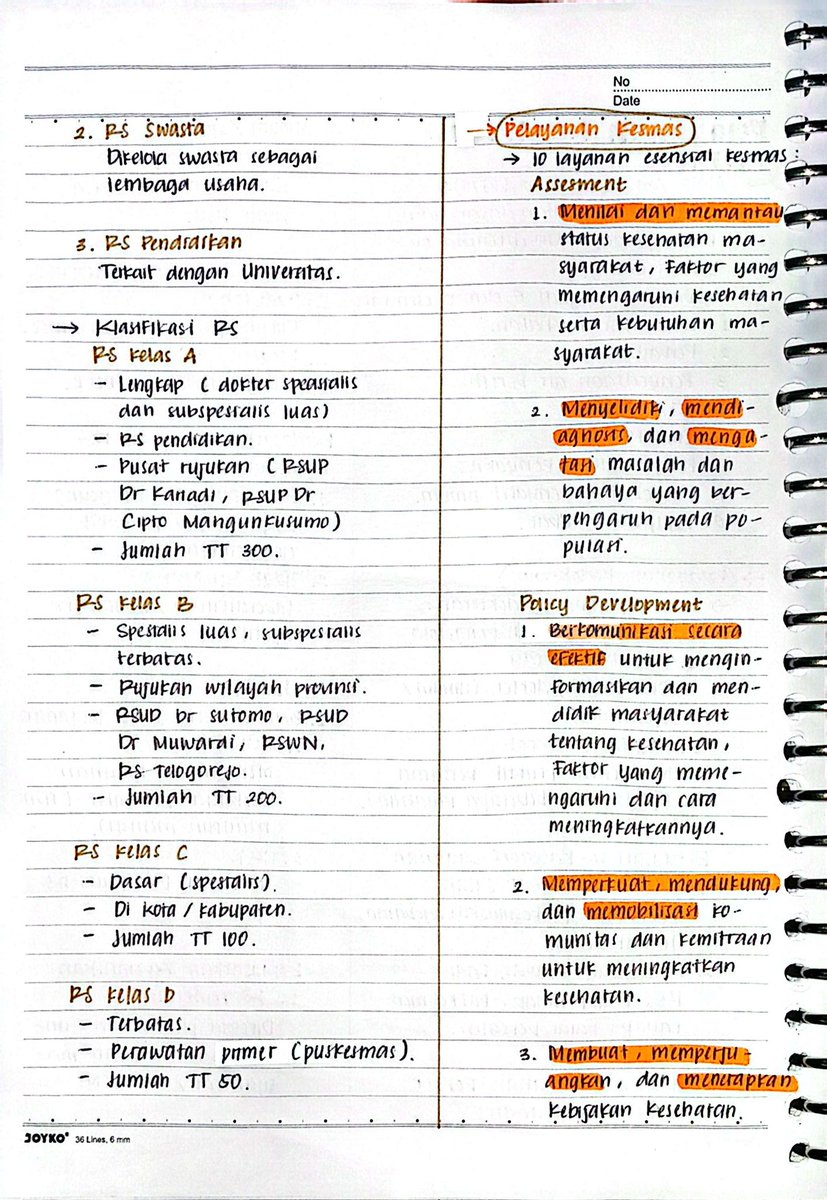 No
Date
2. RS Swasta
Dikelola swasta sebagai
lembaga usaha.
3. RS Pendidikan
Terkait dengan Universitas.
→ Klasifikasi RS
RS Kelas A
- Lengkap ( dokter spesialis
dan subspesialis luas)
- RS pendidikan.
- Pusat rujukan ( RSUP
Dr Kariadi, RSUP Dr
Cipto Mangunkusumo)
- Jumlah TT 300.
RS Kelas B
- Spesialis luas, subspesialis
terbatas.
- Rujukan wilayah provinsi.
- RSUD Dr Sutomo, RSUD
Dr Muwardi, RSWN,
RS Telogorejo.
- Jumlah TT 200.
RS Kelas C
- Dasar (spesialis).
- Di Kota / kabupaten.
- Jumlah TT 100.
RS Kelas D
- Terbatas.
- Perawatan primer (puskesmas).
- Jumlah TT 50.
→ Pelayanan Kesmas
→ 10 layanan esensial kesmas :
Assesment
1. Menilai dan memantau
status kesehatan ma-
syarakat, Faktor yang
memengaruhi kesehatan
serta kebutuhan ma-
syarakat.
2. Menyelidiki, mendi-
agnosis, dan menga-
tasi masalah dan
bahaya yang ber-
pengaruh pada po-
pulasi.
Policy Development
1. Berkomunikasi secara
efektif untuk mengin-
formasikan dan men-
didik masyarakat
tentang kesehatan,
Faktor yang meme-
ngaruhi dan cara
meningkatkannya.
2. Memperkuat, mendukung,
dan memobilisasi ko-
munitas dan kemitraan
untuk meningkatkan
kesehatan.
3. Membuat, memperju-
angkan, dan menerapkan
kebijakan kesehatan.
JOYKO 36 Lines, 6 mm